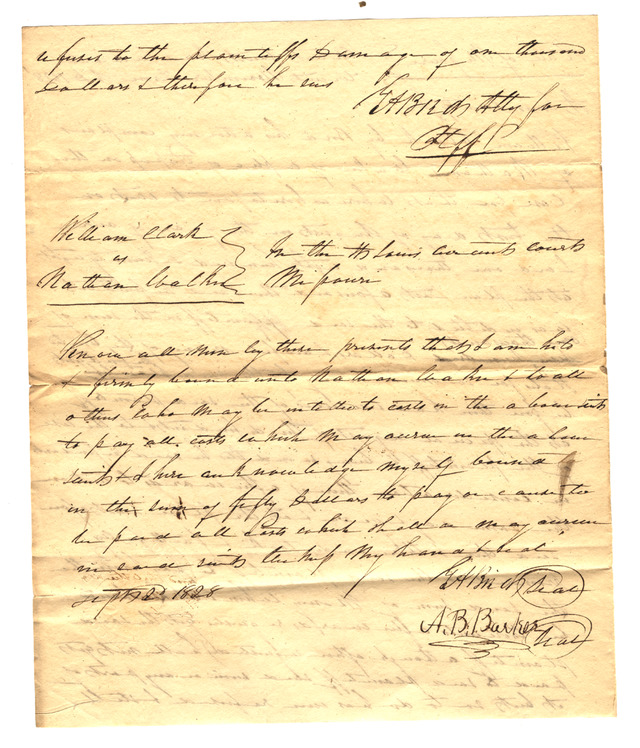 refuses to the plaintiffs damage of one thousand
dollars & therefore he sues
Atty for
Plff
William Clark
vs
Nathan Walker
In the St Louis circuit courts
Missouri
Know all men by these presents that I am held
& firmly bound unto Nathan Walker & to all
others who may be intitled to costs in the above suit
to pay all costs which may accrue in the above
suit & I here acknowledge myself bound
in the sum of fifty dollars to pay or cause to
be paid all costs which shall or may accrue
in said suit Witness my hand & seal
Sept 1828
Seal
A. B. Barker Seal